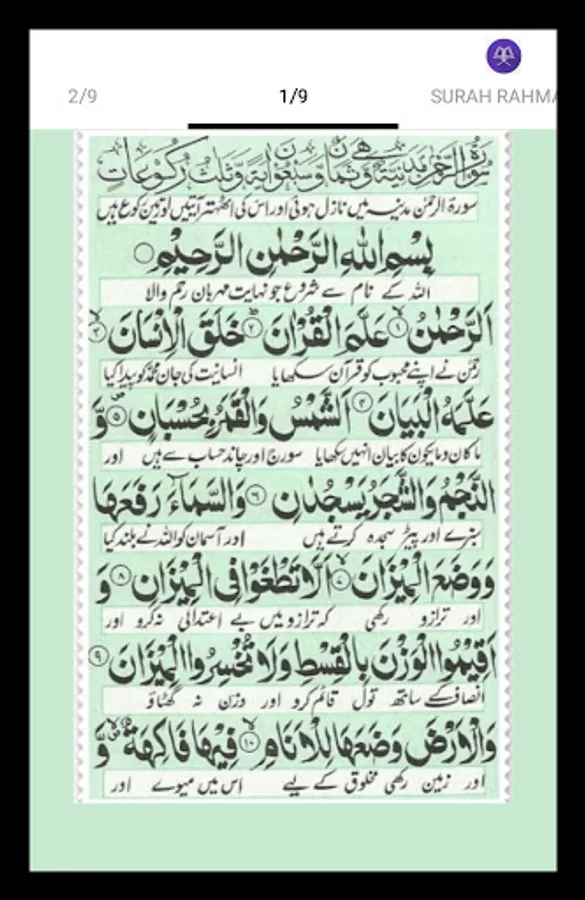 2/9 1/9 SURAH RAHMA
سُوْرَةُ الرَّحْمٰنِ مَدَنِيَّةٌ وَّهِيَ ثَمَانٌ وَّسَبْعُوْنَ اٰيَةً وَّثَلٰثُ رُكُوْعَاتٍ
سورۃ الرحمٰن مدینہ میں نازل ہوئی اور اس کی اٹھہتر آیتیں اور تین رکوع ہیں
بِسْمِ اللّٰهِ الرَّحْمٰنِ الرَّحِيْمِ
اللہ کے نام سے شروع جو نہایت مہربان رحم والا
اَلرَّحْمٰنُ ۙ﴿۱﴾ عَلَّمَ الْقُرْاٰنَ ؕ﴿۲﴾ خَلَقَ الْاِنْسَانَ ۙ﴿۳﴾
رحمٰن نے اپنے محبوب کو قرآن سکھایا انسانیت کی جان محمد کو پیدا کیا
عَلَّمَهُ الْبَيَانَ ﴿۴﴾ اَلشَّمْسُ وَالْقَمَرُ بِحُسْبَانٍ ﴿۵﴾ وَّ
ما کان وما یکون کا بیان انہیں سکھایا سورج اور چاند حساب سے ہیں اور
النَّجْمُ وَالشَّجَرُ يَسْجُدٰنِ ﴿۶﴾ وَالسَّمَآءَ رَفَعَهَا
سبزے اور پیڑ سجدہ کرتے ہیں اور آسمان کو اللہ نے بلند کیا
وَوَضَعَ الْمِيْزَانَ ۙ﴿۷﴾ اَلَّا تَطْغَوْا فِی الْمِيْزَانِ ﴿۸﴾ وَ
اور ترازو رکھی کہ ترازو میں بے اعتدالی نہ کرو اور
اَقِيْمُوا الْوَزْنَ بِالْقِسْطِ وَلَا تُخْسِرُوا الْمِيْزَانَ ﴿۹﴾
انصاف کے ساتھ تول قائم کرو اور وزن نہ گھٹاؤ
وَالْاَرْضَ وَضَعَهَا لِلْاَنَامِ ۙ﴿۱۰﴾ فِيْهَا فَاكِهَةٌ وَّ
اور زمین رکھی مخلوق کے لیے اس میں میوے اور